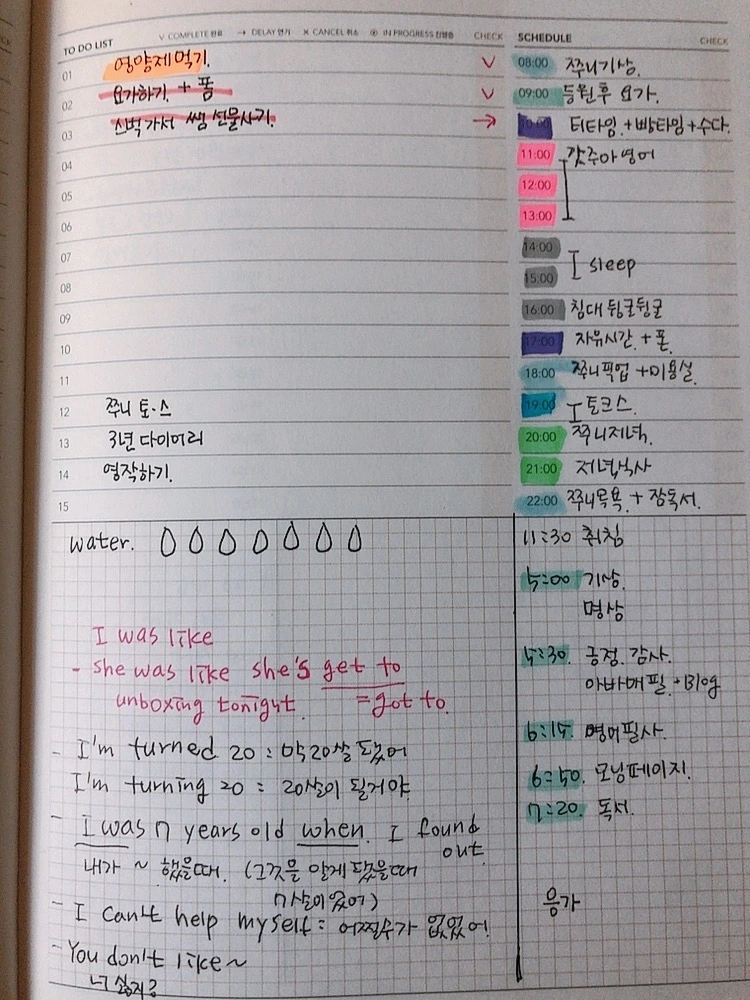 TO DO LIST
∨ COMPLETE 완료 → DELAY 연기 × CANCEL 취소 ⊙ IN PROGRESS 진행중 CHECK
01 영양제먹기. ∨
02 요가하기. + 폼 ∨
03 스벅가서 쌤 선물사기. →
04
05
06
07
08
09
10
11
12 쭈니 토·스
13 3년 다이어리
14 영작하기.
15
SCHEDULE CHECK
08:00 쭈니기상.
09:00 등원후 요가.
10:00 티타임.+빵타임+수다.
11:00 갓주아영어
12:00
13:00
14:00
15:00 sleep
16:00 침대 뒹굴뒹굴
17:00 자유시간.+폰.
18:00 쭈니픽업+미용실.
19:00 토크스.
20:00 쭈니저녁.
21:00 저녁식사
22:00 쭈니목욕.+잠독서.
water.
I was like
- she was like she's get to
unboxing tonight. =got to.
- I'm turned 20 : 막20살 됐어
I'm turning 20 : 20살이 될거야
- I was 7 years old when. I found
out.
내가 ~ 했을때. (그것을 알게 됐을때
7살이었어)
- I can't help myself : 어쩔수가 없었어!
- You don't like~
너 싫지?
11:30 취침
5:00 기상.
명상
5:30. 긍정.감사.
아바매필.+Blog
6:15. 영어필사.
6:50. 모닝페이지.
7:20. 독서.
응가